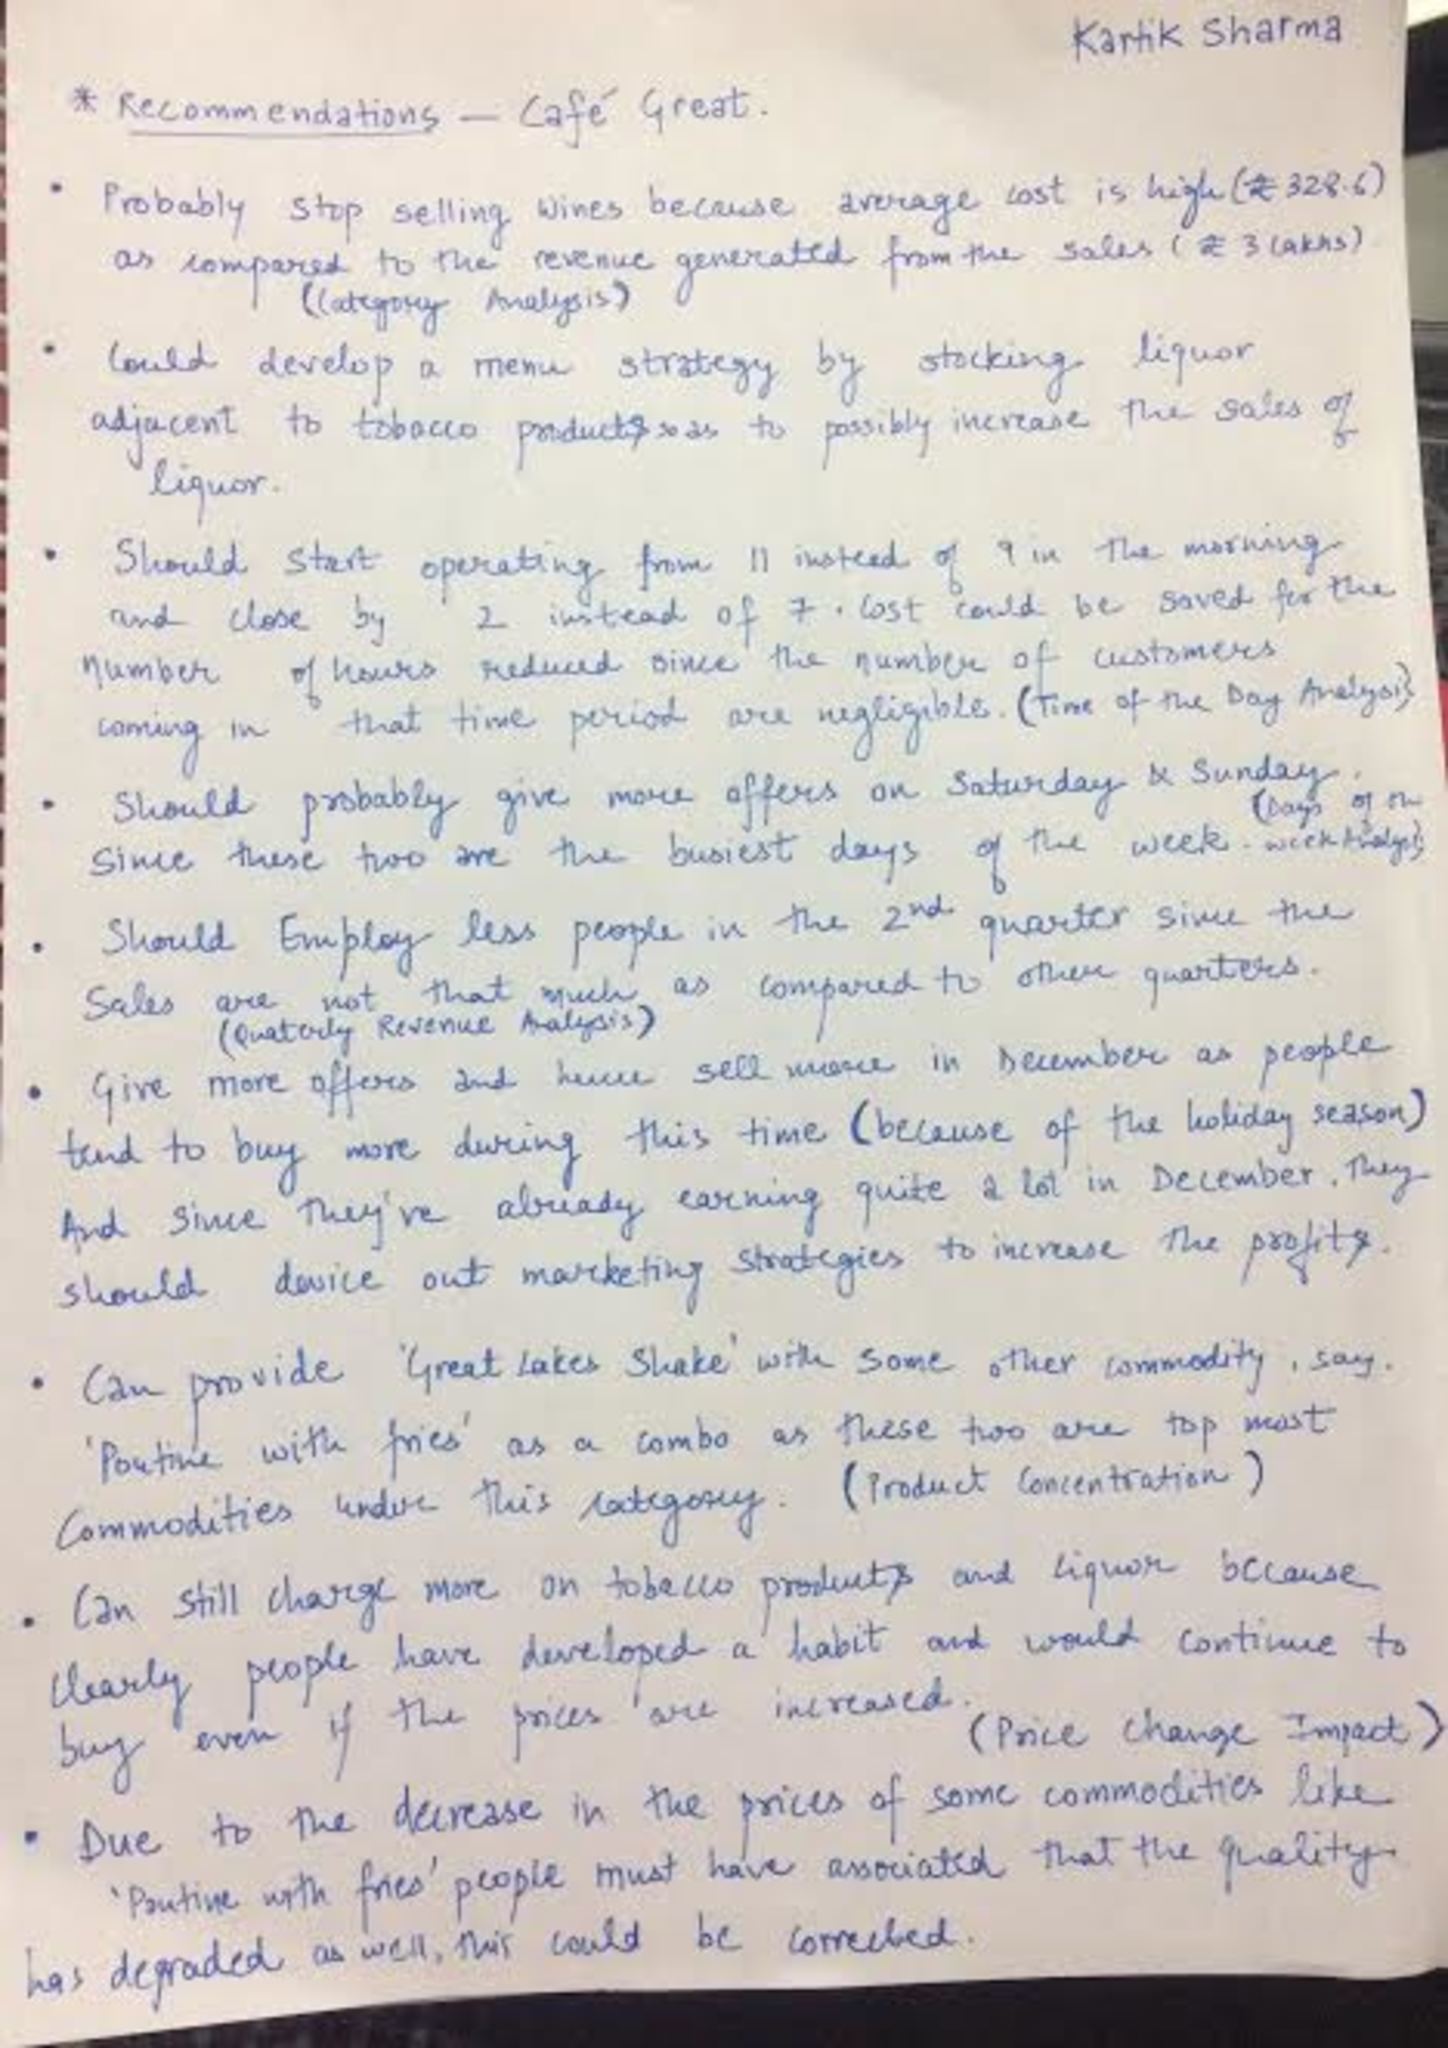 Kartik Sharma
* Recommendations — Café Great.
• Probably stop selling wines because average cost is high (₹ 328.6)
as compared to the revenue generated from the sales (₹ 3 lakhs)
(Category Analysis)
• Could develop a menu strategy by stocking liquor
adjacent to tobacco products so as to possibly increase the sales of
liquor.
• Should start operating from 11 instead of 9 in the morning
and close by 2 instead of 7. Cost could be saved for the
number of hours reduced since the number of customers
coming in that time period are negligible. (Time of the Day Analysis)
• Should probably give more offers on Saturday & Sunday.
(Days of the
since these two are the busiest days of the week. week Analysis)
• Should Employ less people in the 2nd quarter since the
Sales are not that much as compared to other quarters.
(Quaterly Revenue Analysis)
• Give more offers and hence sell more in December as people
tend to buy more during this time (because of the holiday season)
And since they've already earning quite a lot in December, they
should device out marketing strategies to increase the profits.
• Can provide 'Great Lakes Shake' with some other commodity, say.
'Poutine with fries' as a combo as these two are top most
Commodities under this category. (Product Concentration)
• Can still charge more on tobacco products and liquor because
clearly people have developed a habit and would continue to
buy even if the prices are increased.
(Price Change Impact)
• Due to the decrease in the prices of some commodities like
'Poutine with fries' people must have associated that the quality
has degraded as well, this could be corrected.